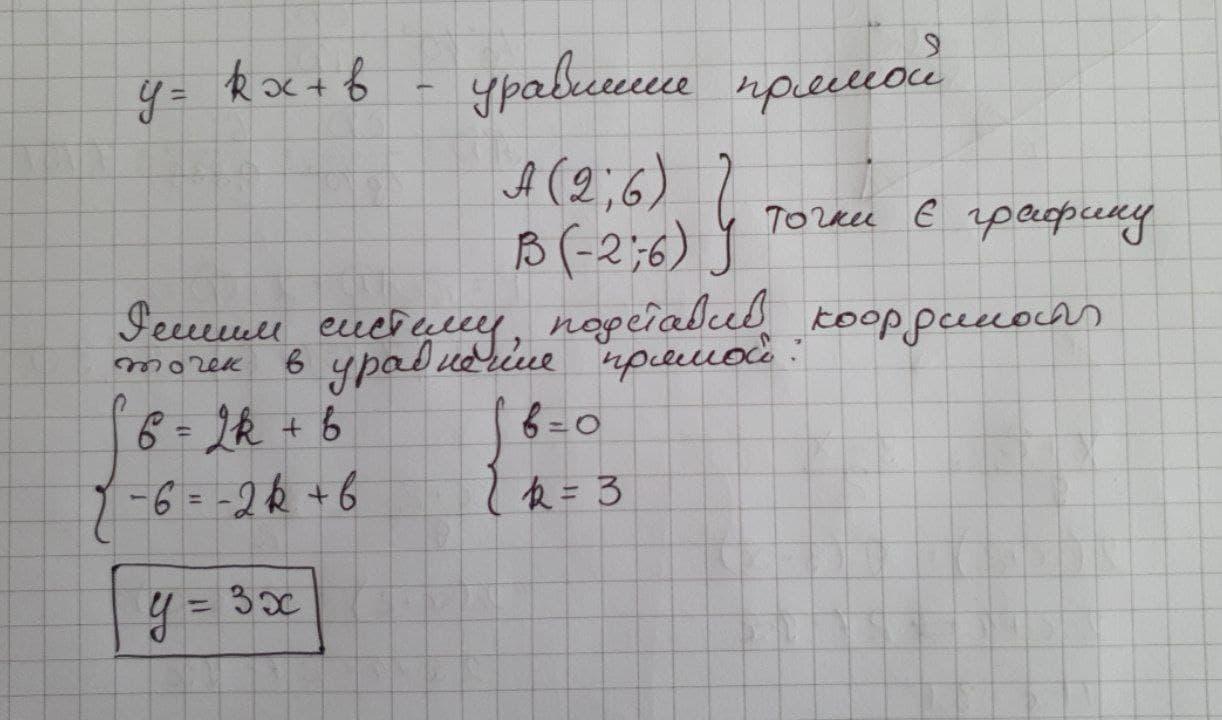 y = kx + b - уравнение прямой
A(2;6)
B(-2;-6) } точки ∈ графику
Решим систему, подставив координаты
точек в уравнение прямой:
{ 6 = 2k + b
-6 = -2k + b
{ b = 0
k = 3
y = 3x